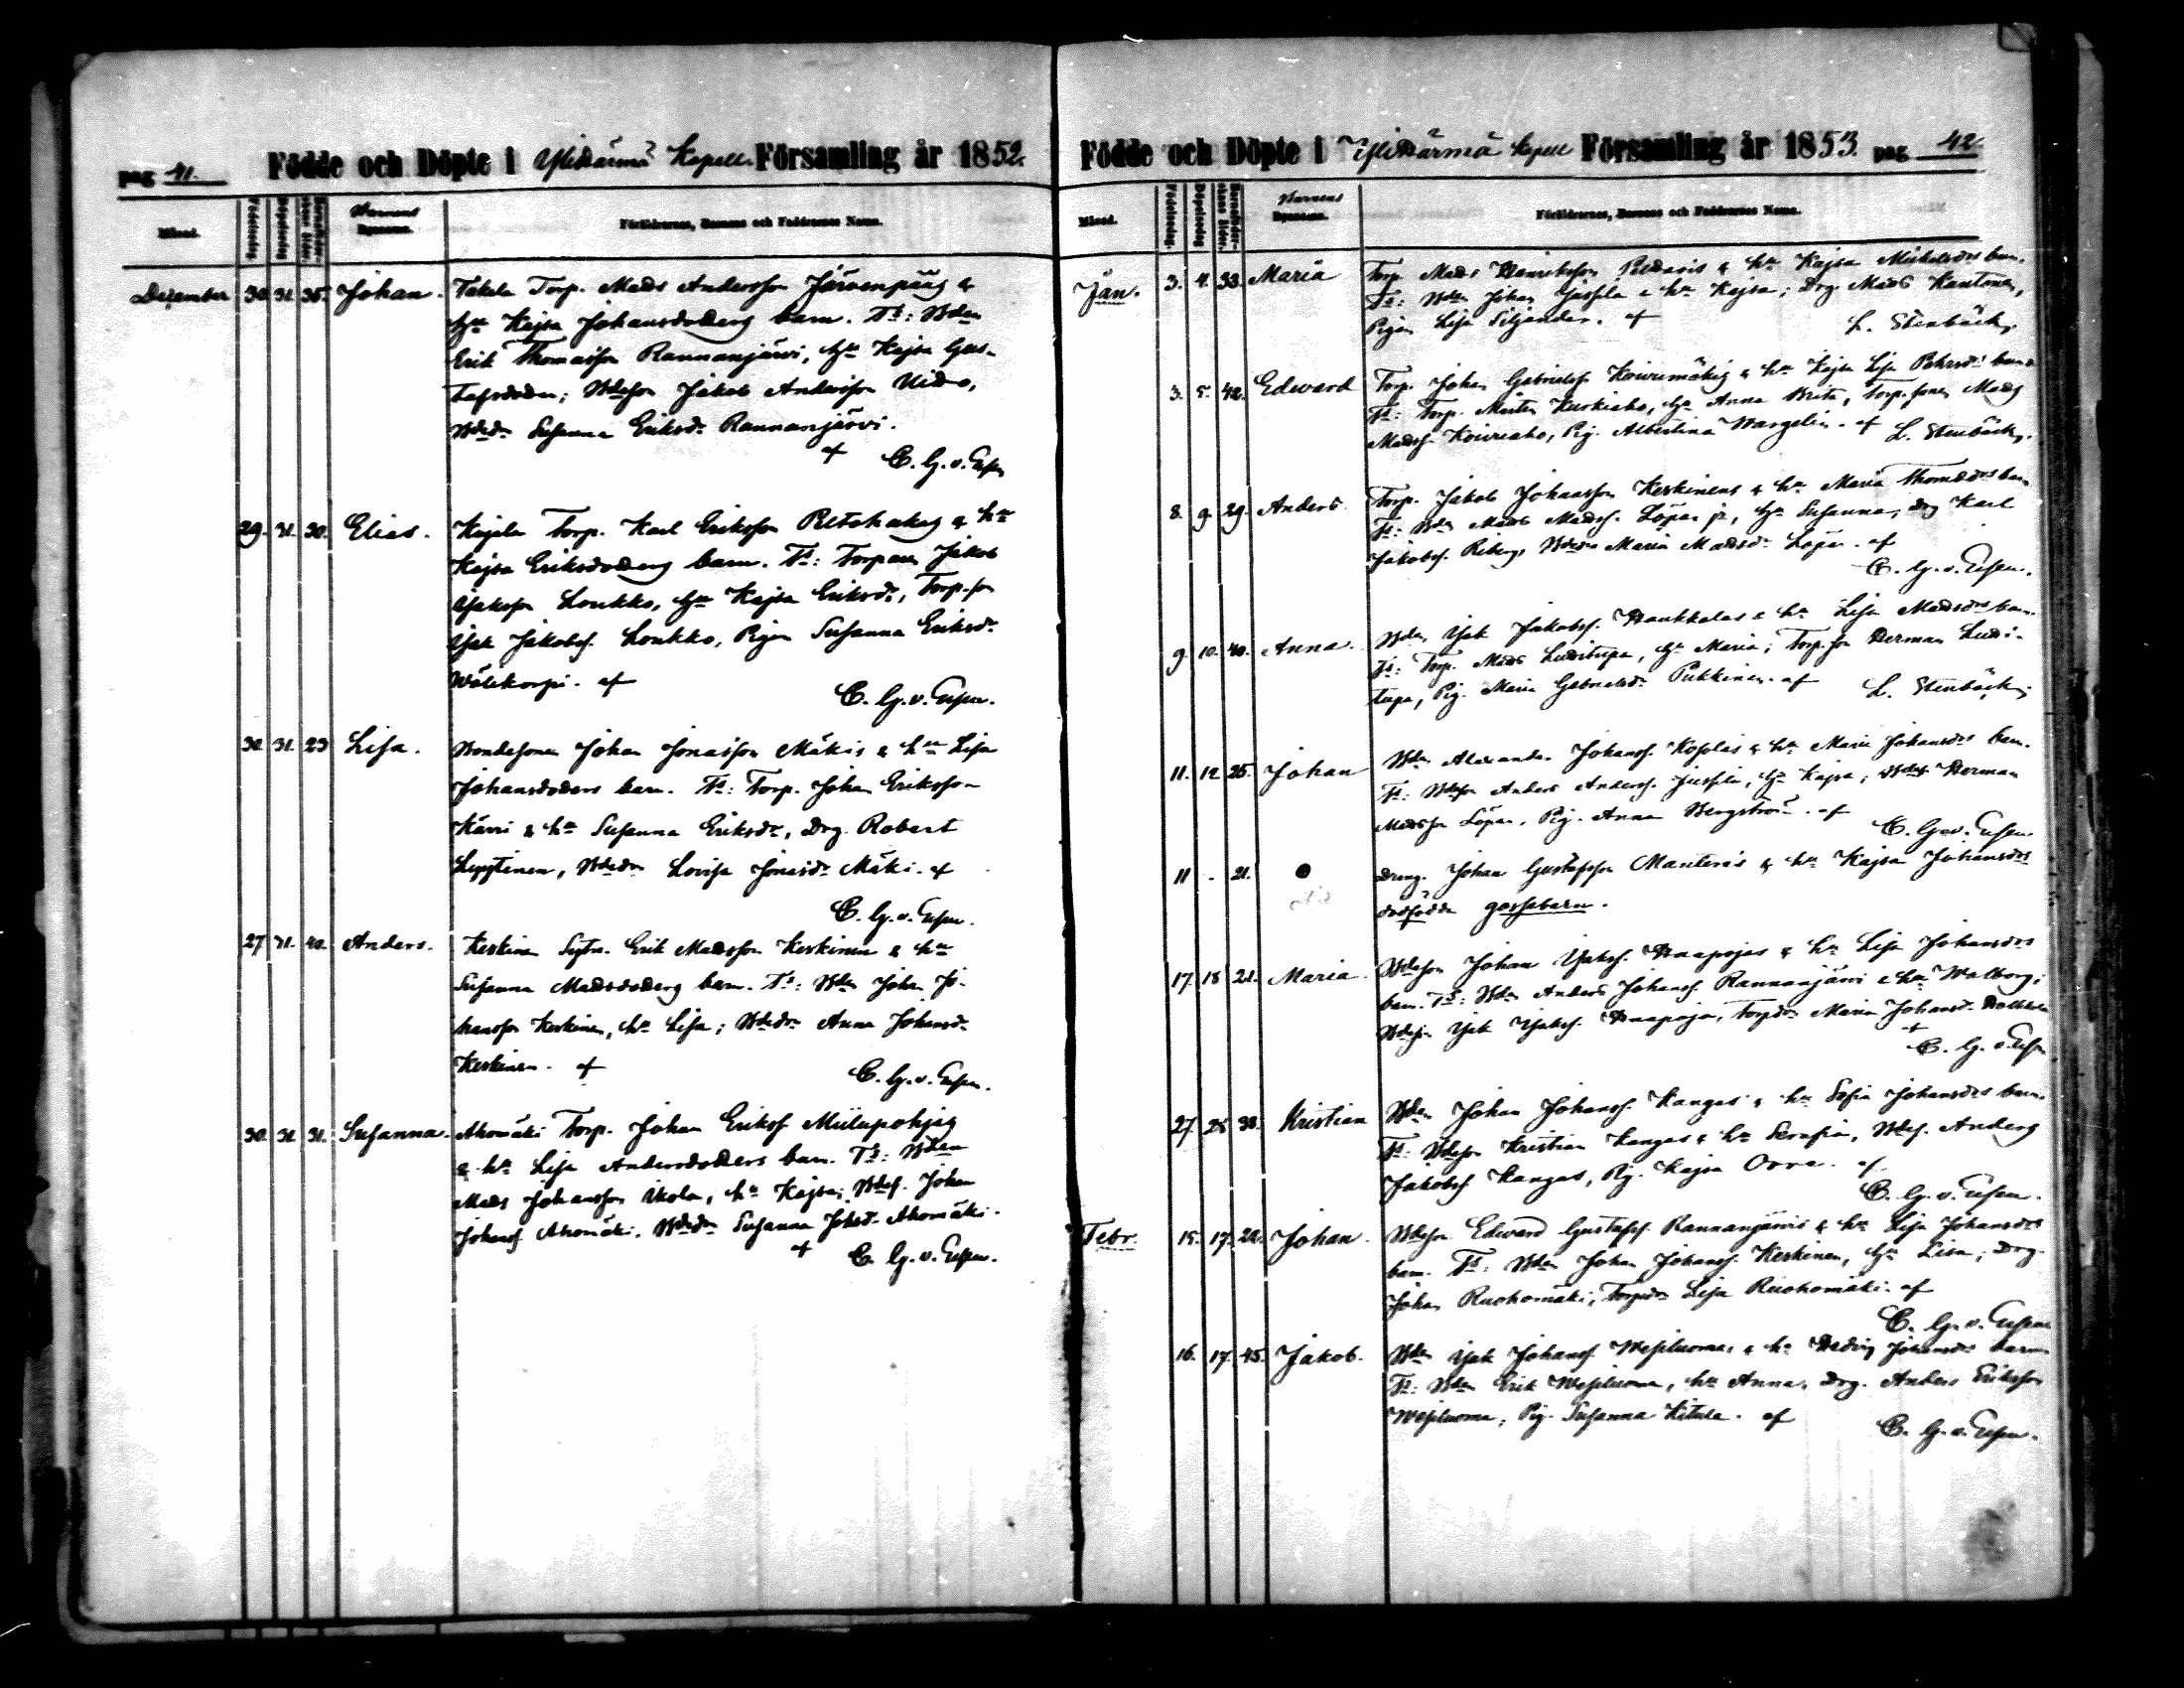 pag 41. Födde och Döpte i Ylikärmä Kapell Församling år 1852.
Månad. Födelsedag Döpelsedag Barnens Föräldrarnes, Barnens och Faddrarnes Namn.
December 30. 31. 35. Johan. Takala Torp. Mads Andersson Järvenpääs &
hu Kajsa Johansdoters barn. Ts: Bden
Erik Thomasson Rannanjärvi, hu Kajsa Gus-
tafsdoter; Bdeson Jakob Andersson
Bdedr Susanna Eriksdr Rannanjärvi.
af C. G. v. Essen
29. 31. 30. Elias. Torp. Karl Eriksson & hu
Kajsa Eriksdoters barn. Ts: Torparen Jakob
Isaksson Loukko, hu Kajsa Eriksdr, Torp.son
Isak Jakobss. Loukko, Pigan Susanna Eriksdr
Wälikorpi. af
C. G. v. Essen.
30. 31. 23 Lisa. Bondesonen Johan Jonasson Mäkis & hu Lisa
Johansdoters barn. Ts: Torp. Johan Eriksson
& hu Susanna Eriksdr, Drg. Robert
Bdedr Lovisa Jonasdr Mäki. af
C. G. v. Essen.
27. 31. 40. Anders. Keskinen Sytn. Erik Madsson Keskinen & hu
Susanna Madsdoters barn. Ts: Bden Johan Jo-
hansson Keskinen, hu Lisa; Bdedr Anna Johansdr
Keskinen. af C. G. v. Essen.
30. 31. 31. Susanna. Ahomäki Torp. Johan Erikss Miilupohjas
& hu Lisa Andersdoters barn. Ts: Bden
Mads Johansson hu Kajsa; Bdes. Johan
Johanss Ahomäki, Bdedr Susanna Johsdr Ahomäki.
af C. G. v. Essen.
Födde och Döpte i Ylikärmä kapell Församling år 1853. pag 42.
Månad. Födelsedag. Döpelsedag Barnens Föräldrarnes, Barnens och Faddrarnes Namn.
Jan. 3. 4. 33. Maria Torp. Mads Henriksson & hu Kajsa Michelsdrs barn.
Ts: Bden Johan Jussila & hu Kajsa; Drg. Mads Kantonen,
Pigan Lisa Siljander. af L. Stenbäck.
3. 5. 42. Edward Torp. Johan Gabrielss Koivumäkis & hu Kajsa Lisa Pehrsdrs barn
Ts: Torp. Keskiaho, hu Anna Brita, Torp.sonen Mads
Madss. Koivuaho, Pig. Albertina Wargelin. af L. Stenbäck.
8. 9. 29. Anders. Torp. Jakob Johansson Keskinens & hu Maria Thomasdrs barn
Ts: Bden Mads Madss. Löpar jr, hu Susanna; drg Karl
Jakobss. Riberg, Bdedr Maria Madsdr Löpar. af
C. G. v. Essen.
9. 10. 40. Anna. Bden Isak Jakobss. Haukkalas & hu Lisa Madsdrs barn.
Ts: Torp. Mads hu Maria; Torp.son Herman
Pig. Maria Gabrielsdr Pukkinen. af L. Stenbäck.
11. 12. 25. Johan Bden Alexander Johanss. Kosolas & hu Maria Johansdrs barn.
Ts: Bdeson Anders Anderss. Jussila, hu Kajsa; Bdes. Herman
Madsson Löpar, Pig. Anna Bergström. af
C. G. v. Essen
11 - 21. Dreng. Johan Gustafsson Manteris & hu Kajsa Johansdrs
dödfödda gossebarn.
17. 18 21. Maria. Bdeson Johan Isakss. Haapojas & hu Lisa Johansdrs
barn. Ts: Bden Anders Johanss. Rannanjärvi & hu Walborg;
Bdeson Isak Isakss. Haapoja, Torpdr Maria Johansdr
af C. G. v. Essen
27. 28 38. Kristian Bden Johan Johanss. Kangas & hu Sofia Johansdrs barn.
Ts: Bdeson Kristian Kangas & hu Serafia, Bdes. Anders
Jakobss Kangas, Pig. Kajsa Orre. af
C. G. v. Essen.
Febr. 15. 17. 22. Johan. Bdeson Edward Gustafss. Rannanjärvis & hu Lisa Johansdrs
barn. Ts: Bden Johan Johanss. Keskinen, hu Lisa; Drg.
Johan Ruohomäki, Torpdr Lisa Ruohomäki. af
C. G. v. Essen
16. 17. 45. Jakob. Bden Isak Johanss Wesiluoma & hu Hedvig Johansdrs barn
Ts: Bden Erik Wesiluoma, hu Anna, Drg. Anders Eriksson
Wesiluoma, Pig. Susanna Kitula. af C. G. v. Essen.